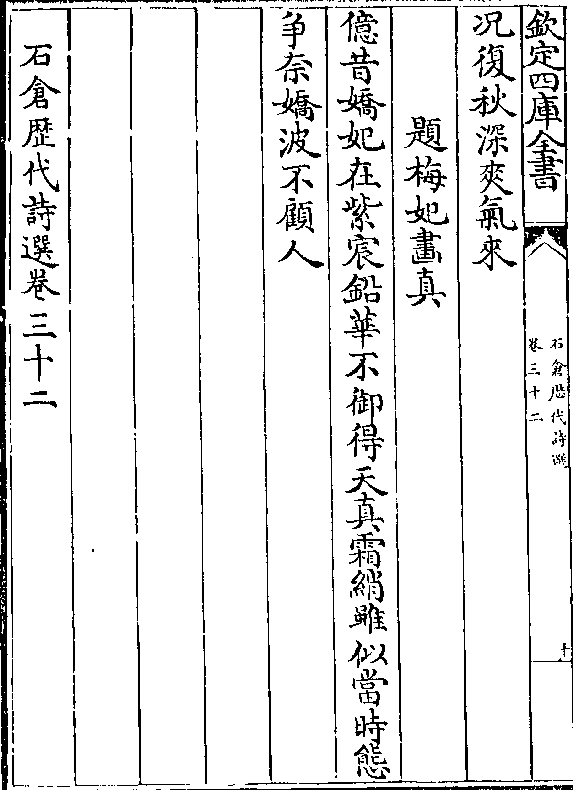 欽定四庫全書
石倉歴代詩選
卷三十二
十
况復秋深爽氣來
題梅妃畫真
億昔嬌妃在紫宸鉛華不御得天真霜綃雖似當時態
争奈嬌波不顧人
石倉歴代詩選卷三十二